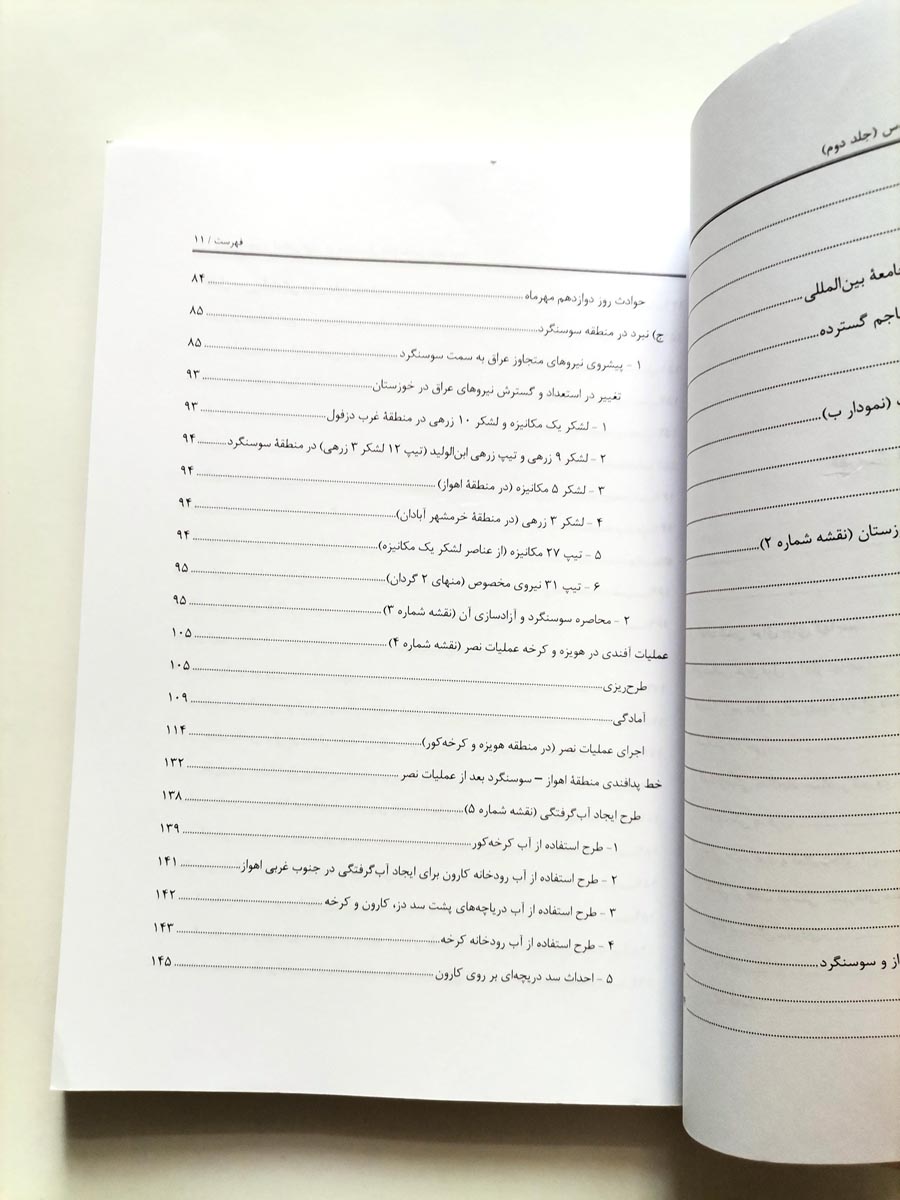 س (جلد دوم)
امعهٔ بین‌المللی
اجم گسترده
(نمودار ب)
زستان (نقشه شماره ۲)
از و سوسنگرد
فهرست / ۱۱
حوادث روز دوازدهم مهرماه ۸۴
ج) نبرد در منطقه سوسنگرد ۸۵
۱ - پیشروی نیروهای متجاوز عراق به سمت سوسنگرد ۸۵
تغییر در استعداد و گسترش نیروهای عراق در خوزستان ۹۳
۱ - لشکر یک مکانیزه و لشکر ۱۰ زرهی در منطقهٔ غرب دزفول ۹۳
۲ - لشکر ۹ زرهی و تیپ زرهی ابن‌الولید (تیپ ۱۲ لشکر ۳ زرهی) در منطقهٔ سوسنگرد ۹۴
۳ - لشکر ۵ مکانیزه (در منطقهٔ اهواز) ۹۴
۴ - لشکر ۳ زرهی (در منطقهٔ خرمشهر آبادان) ۹۴
۵ - تیپ ۲۷ مکانیزه (از عناصر لشکر یک مکانیزه) ۹۴
۶ - تیپ ۳۱ نیروی مخصوص (منهای ۲ گردان) ۹۵
۲ - محاصره سوسنگرد و آزادسازی آن (نقشه شماره ۳) ۹۵
عملیات آفندی در هویزه و کرخه عملیات نصر (نقشه شماره ۴) ۱۰۵
طرح‌ریزی ۱۰۵
آمادگی ۱۰۹
اجرای عملیات نصر (در منطقه هویزه و کرخه‌کور) ۱۱۴
خط پدافندی منطقهٔ اهواز – سوسنگرد بعد از عملیات نصر ۱۳۲
طرح ایجاد آب‌گرفتگی (نقشه شماره ۵) ۱۳۸
۱- طرح استفاده از آب کرخه‌کور ۱۳۹
۲ - طرح استفاده از آب رودخانه کارون برای ایجاد آب‌گرفتگی در جنوب غربی اهواز ۱۴۱
۳ - طرح استفاده از آب دریاچه‌های پشت سد دز، کارون و کرخه ۱۴۲
۴ - طرح استفاده از آب رودخانه کرخه ۱۴۳
۵ - احداث سد دریچه‌ای بر روی کارون ۱۴۵